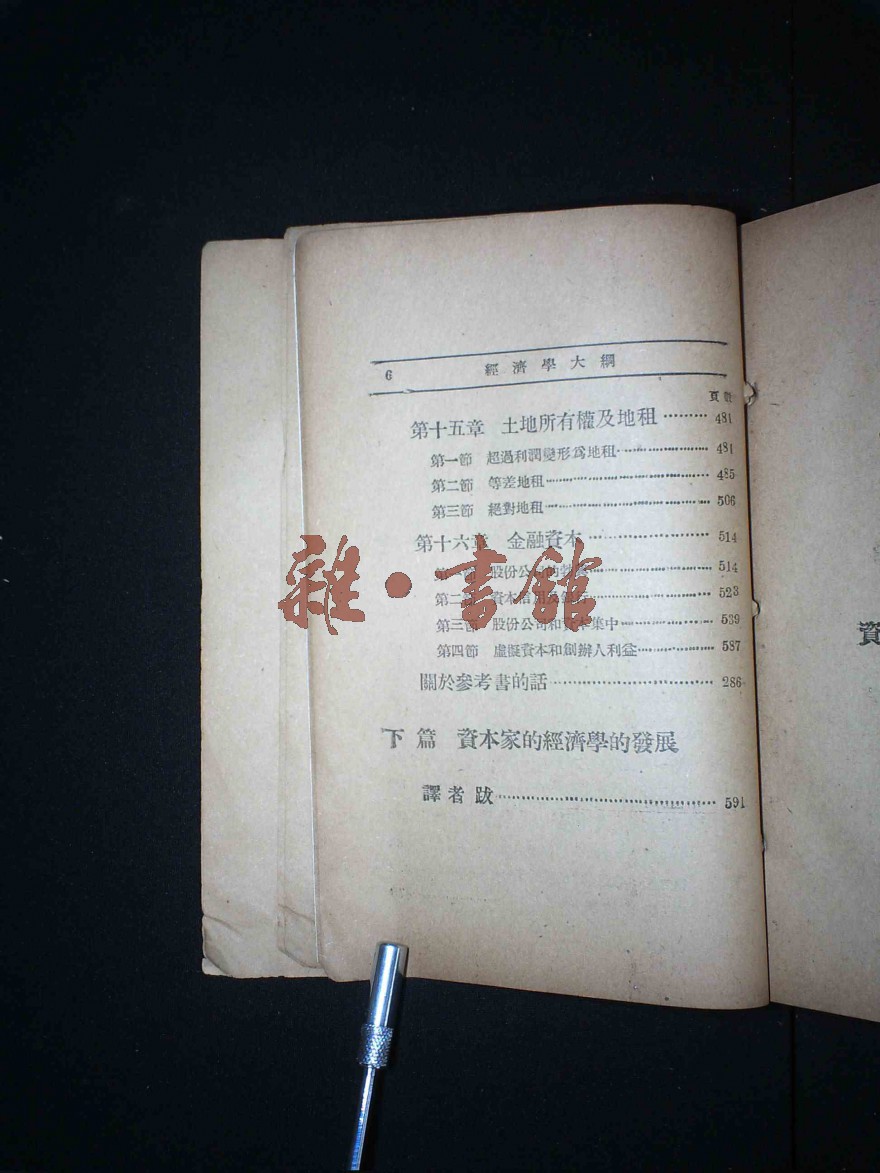 6 經濟學大綱
頁數
第十五章 土地所有權及地租 481
第一節 超過利潤變形爲地租 481
第二節 等差地租 485
第三節 絕對地租 506
第十六章 金融資本 514
第一節 股份公司的 514
第二節 資本信用 523
第三節 股份公司和資本集中 539
第四節 虛擬資本和創辦人利益 587
關於參考書的話 286
下篇 資本家的經濟學的發展
譯者跋 591
資
雜·書館